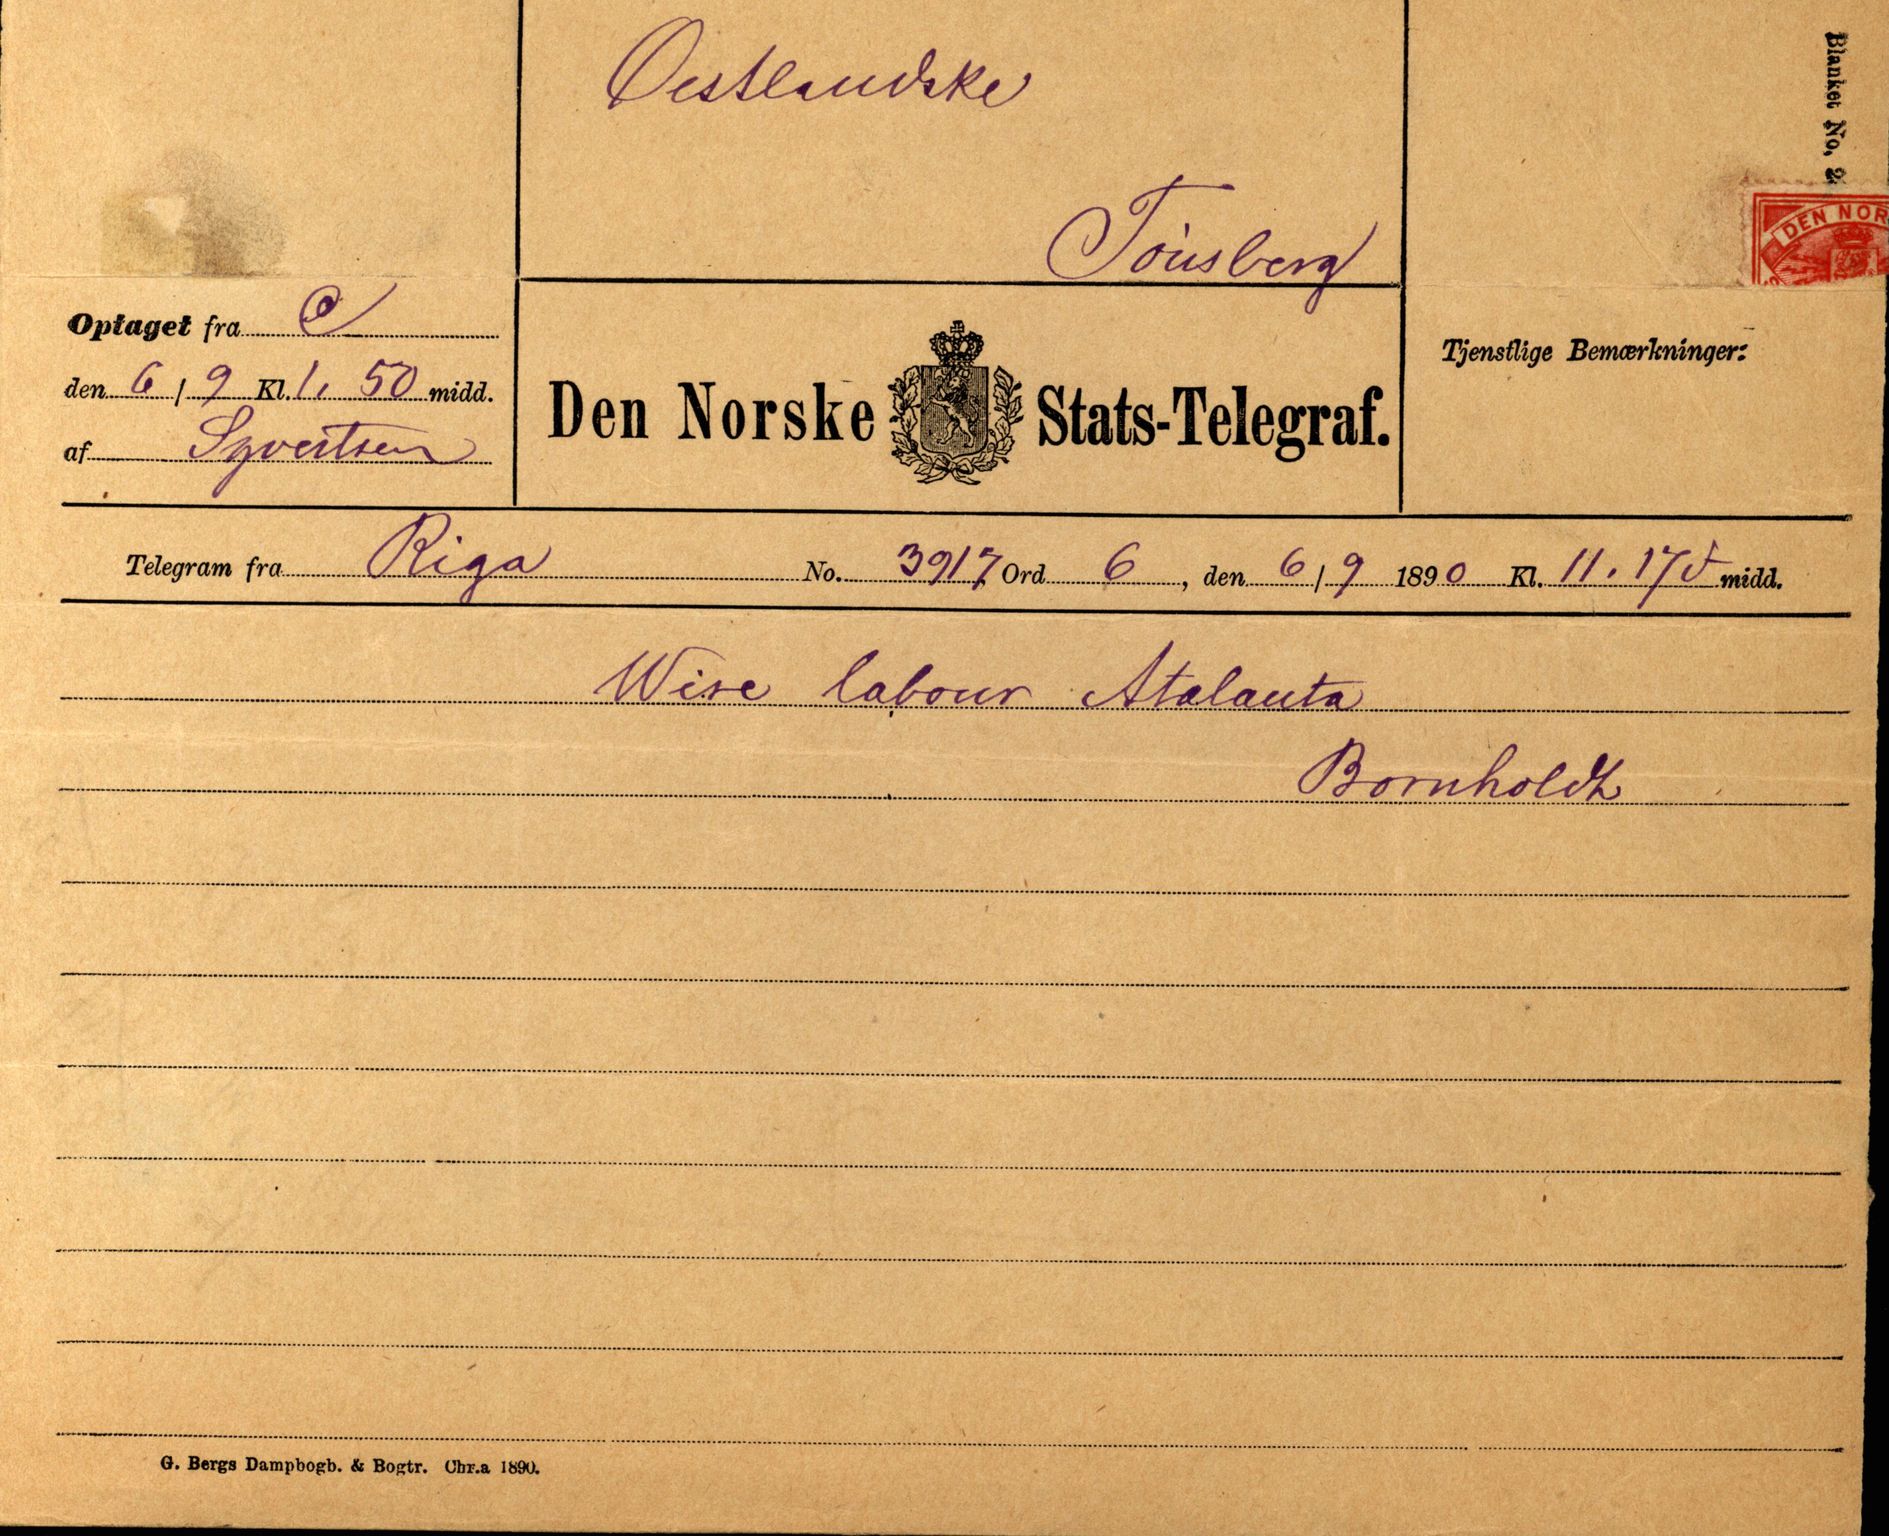 Oestlandske
Tönsberg
Blanket No, 2
DEN NOR
Optaget fra C
den 6 / 9 Kl. 1. 50 midd.
af Syvertsen
Den Norske Stats-Telegraf.
Tjenstlige Bemærkninger:
Telegram fra Riga No. 3917, Ord 6, den 6 / 9 1890 Kl. 11. 17 f midd.
Wire labour Atalanta
Bornholdt
G. Bergs Dampbogb. & Bogtr. Chr.a 1890.